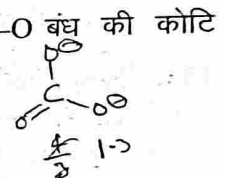 -O बंध की कोटि
O⊖
C
O O⊖
4/3